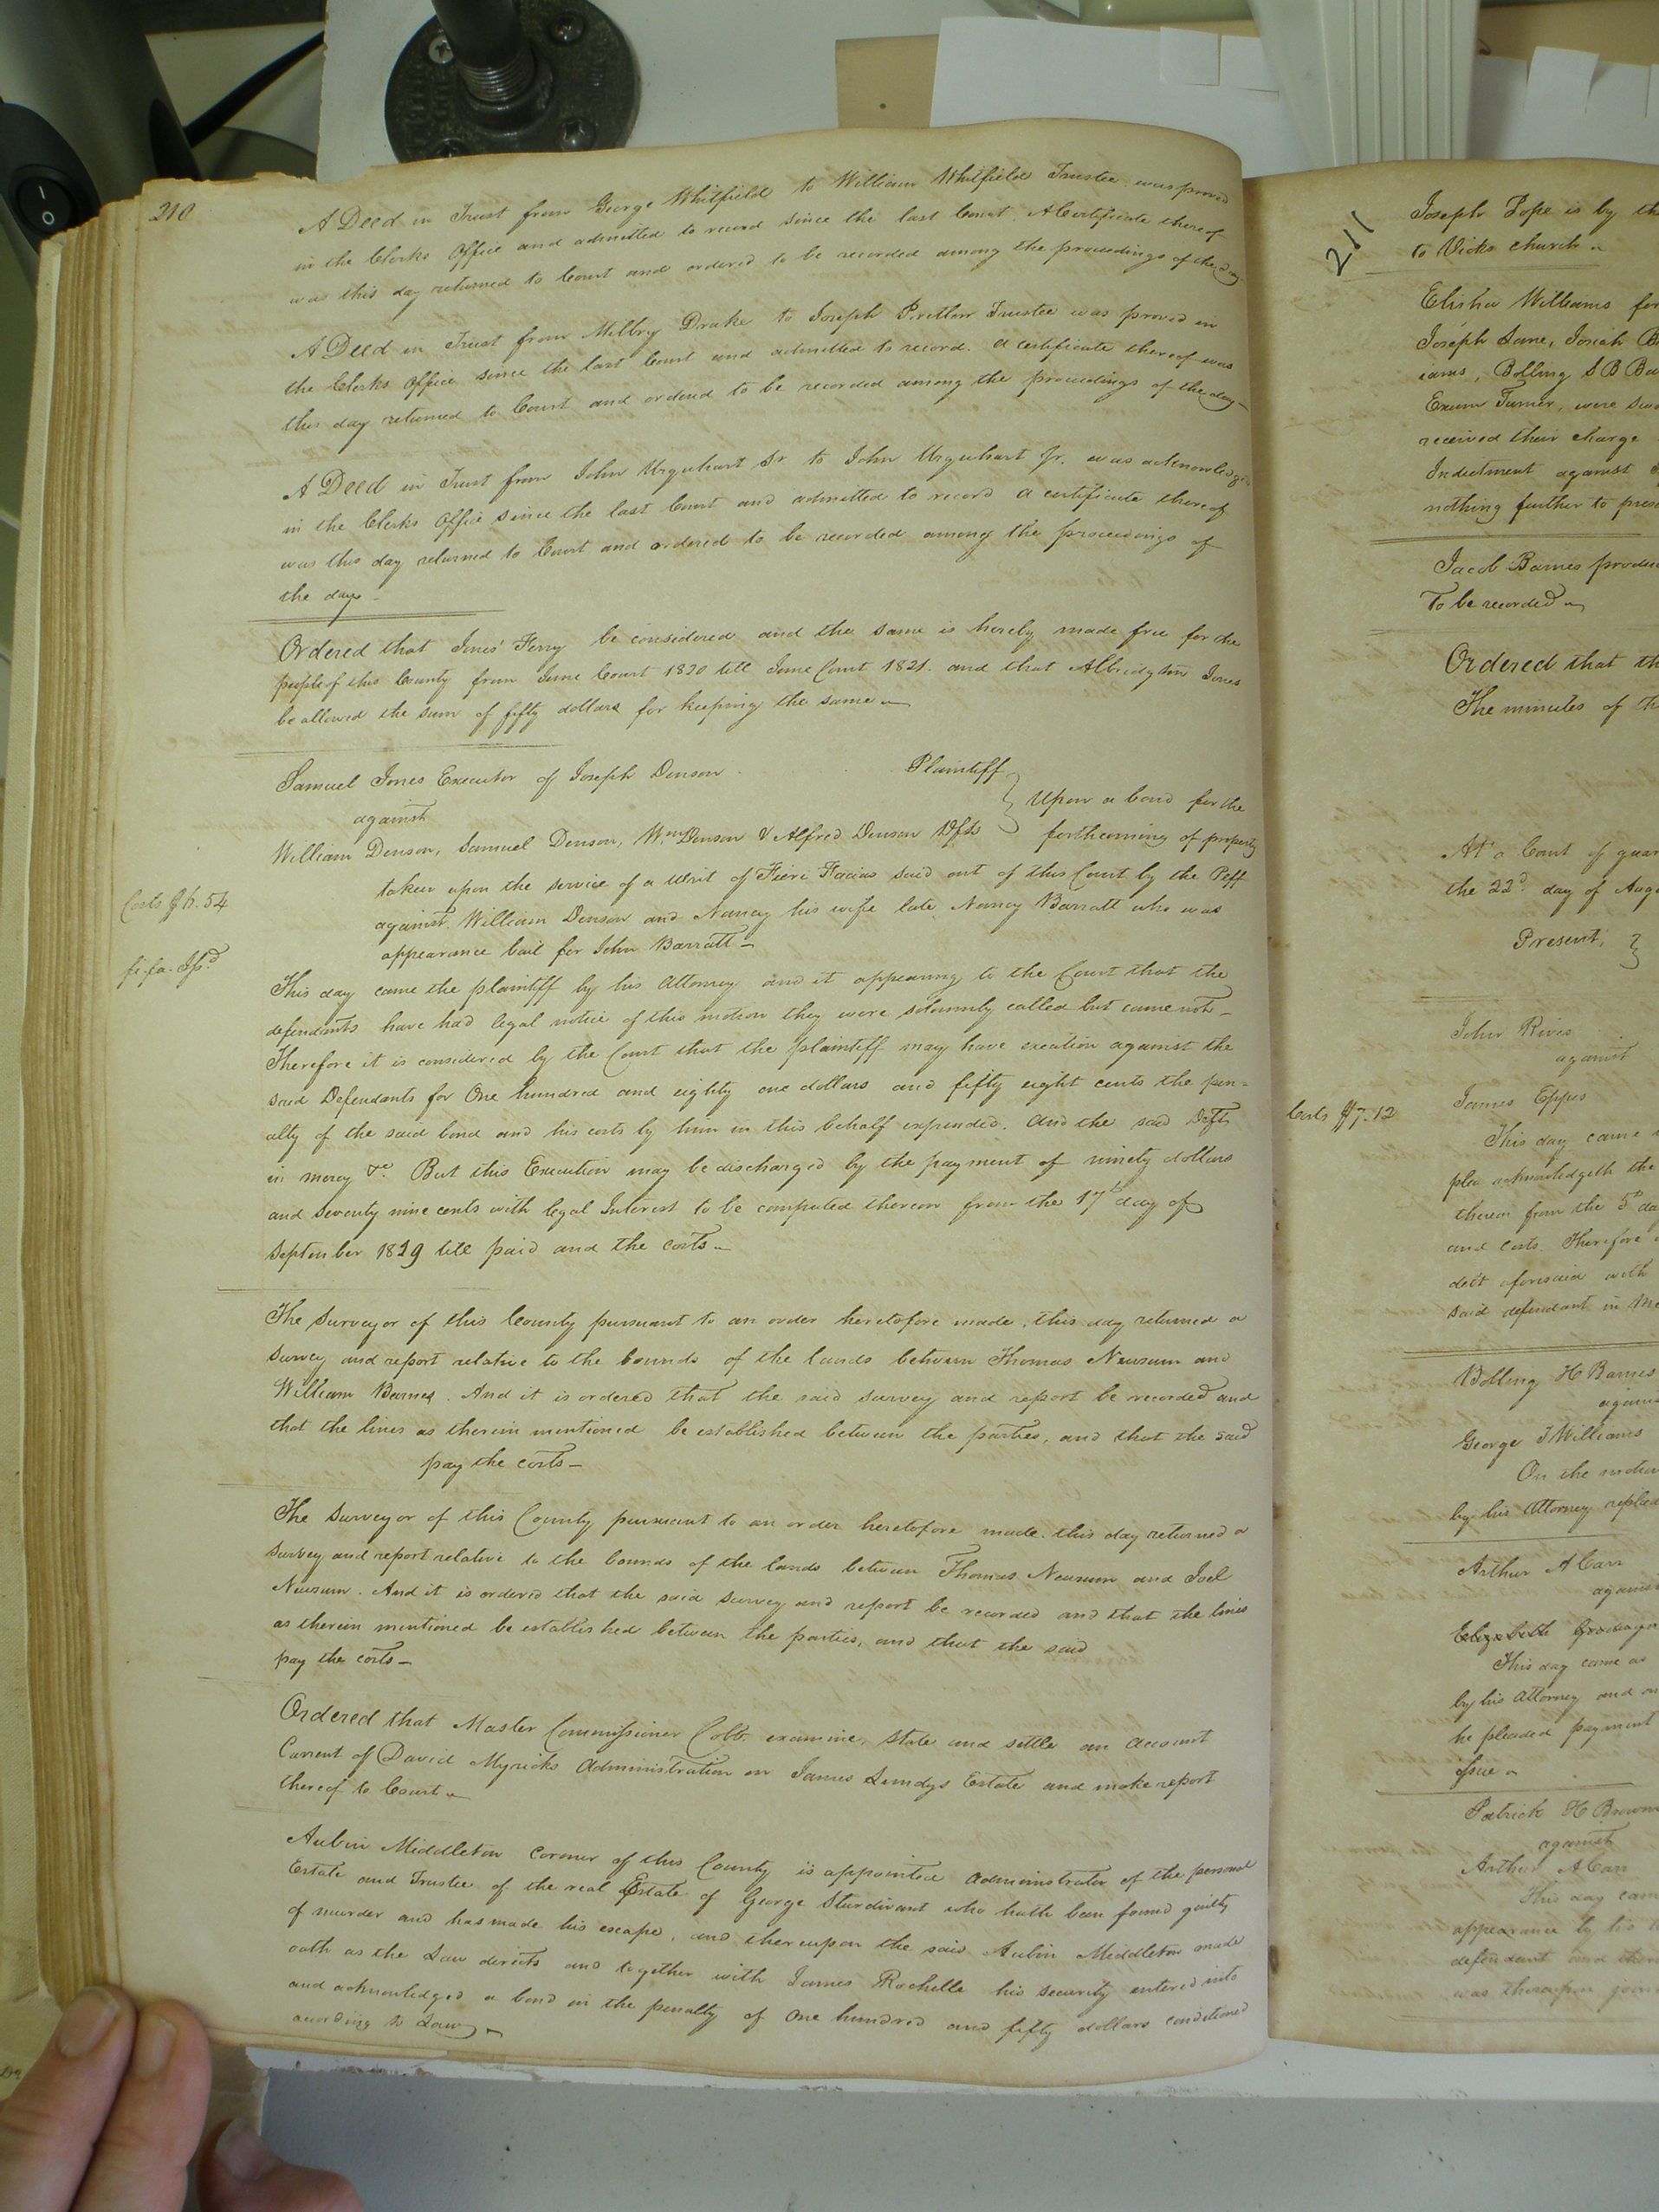 210
A Deed in Trust from George Whitfield to William Whitfield Trustee was proved
in the Clerks Office and admitted to record since the last Court. A Certificate thereof
was this day returned to Court and ordered to be recorded among the proceedings of the day
A Deed in Trust from Milbry Drake to Joseph Pretlow Trustee was proved in
the Clerks Office since the last Court and admitted to record. a certificate thereof was
this day returned to Court and ordered to be recorded among the proceedings of the day—
A Deed in Trust from John Urquhart Sr to John Urquhart Jr. was acknowledged
in the Clerks Office since the last Court and admitted to record a certificate thereof
was this day returned to Court and ordered to be recorded among the proceedings of
the day—
Ordered that Jones' Ferry be considered and the same is hereby made free for the
people of this County from June Court 1820 till June Court 1821. and that Albridgton Jones
be allowed the sum of fifty dollars for keeping the same—
Samuel Jones Executor of Joseph Denson Plaintiff
against } Upon a bond for the
William Denson, Samuel Denson, Wm Denson & Alfred Denson Dfts forthcoming of property
taken upon the service of a Writ of Fieri Facias sued out of this Court by the Peff
Costs $6.54
against William Denson and Nancy his wife late Nancy Barratt who was
appearance bail for John Barratt—
fi. fa. Isd.
This day came the plaintiff by his Attorney and it appearing to the Court that the
defendants have had legal notice of this motion they were solemnly called but came not—
Therefore it is considered by the Court that the plaintiff may have execution against the
said Defendants for One hundred and eighty one dollars and fifty eight cents the pen=
alty of the said bond and his costs by him in this behalf expended. And the said Defts
in mercy &c. But this Execution may be discharged by the payment of ninety dollars
and seventy nine cents with legal Interest to be computed thereon from the 17th day of
September 1819 till paid and the costs—
The Surveyor of this County pursuant to an order heretofore made, this day returned a
survey and report relative to the bounds of the lands between Thomas Newsum and
William Barnes. And it is ordered that the said survey and report be recorded and
that the lines as therein mentioned be established between the parties, and that the said
pay the costs—
The Surveyor of this County pursuant to an order heretofore made. this day returned a
survey and report relative to the bounds of the lands between Thomas Newsum and Joel
Newsum. And it is ordered that the said survey and report be recorded and that the lines
as therein mentioned be established between the parties, and that the said
pay the costs—
Ordered that Master Commissioner Cobb, examine, state and settle an account
Current of David Myricks Administration on James Lundys Estate and make report
thereof to Court—
Aubin Middleton Coroner of this County is appointed Administrator of the personal
Estate and Trustee of the real Estate of George Sturdivant who hath been found guilty
of murder and has made his escape, and thereupon the said Aubin Middleton made
oath as the Law directs and together with James Rochelle his security entered into
and acknowledged a bond in the penalty of One hundred and fifty dollars conditioned
according to Law—
211
Joseph Pope is by th
to Vicks church—
Elisha Williams for
Joseph Lane, Josiah B
iams, Bolling S B Ba
Exum Turner, were swo
received their charge
Indictment against
nothing further to pres
Jacob Barnes produ
To be recorded—
Ordered that th
The minutes of th
At a Court of quar
the 22d. day of Augu
Present, }
John Rives
against
James Eppes
Costs $7.12
This day came
plea acknowledgeth the
thereon from the 5th da
and costs. Therefore
debt aforesaid with
said defendant in Me
Bolling H Barnes
against
George J Williams
On the motion
by his Attorney replied
Arthur A Carr
against
Elizabeth
This day came as
by his Attorney and on
he pleaded payment
issue—
Patrick H Brown
against
Arthur A Carr
This day cam
appearance by his
defendant and ther
was thereupon join